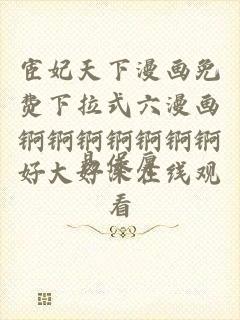 宦妃天下漫画免
费下拉式六漫画
锕锕锕锕锕锕锕
好大好深在线观
看